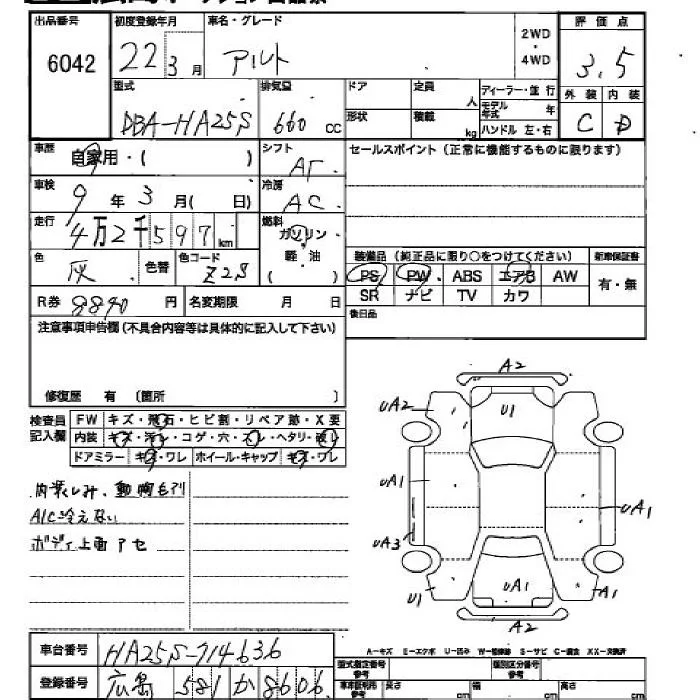 出品番号 初度登録年月 車名・グレード 2WD・4WD 評価点
6042 22 3月 アルト 3.5
型式 排気量 ドア 定員 人 ディーラー・並行 外装 内装
DBA-HA25S 660 CC 形状 積載 kg モデル年式 年 ハンドル 左・右 C D
車歴 自家用・( ) シフト AT セールスポイント(正常に機能するものに限ります)
車検 9年3月( 日) 冷房 AC
走行 4万2千597km 燃料 ガソリン
軽・油
( )
装備品(純正品に限り○をつけてください) 新車保証書
色 灰 色替 色コード Z2S PS PW ABS エアB AW 有・無
SR ナビ TV カワ
R券 9890円 名変期限 月 日 後日品
注意事項申告欄(不具合内容等は具体的に記入して下さい)
修復歴 有 (箇所 )
検査員記入欄 FW キズ・飛石・ヒビ割・リペア跡・X要
内装 キズ・汚れ・コゲ・穴・スレ・ヘタリ・破レ
ドアミラー キズ・ワレ ホイール・キャップ キズ・ワレ
A2
UA2 U1
UA1
UA1
UA3
U1 UA1 A1
A2
A/C冷えない
ボディ上面アセ
A-キズ E-エクボ U-凹み W-補修跡 S-サビ C-腐食 XX-交換済
車台番号 HA25S-714636
型式指定番号 参考 類別区分番号 参考
登録番号 広島 581 か 8606
車庫証明用 参考 長さ cm 幅 cm 高さ cm